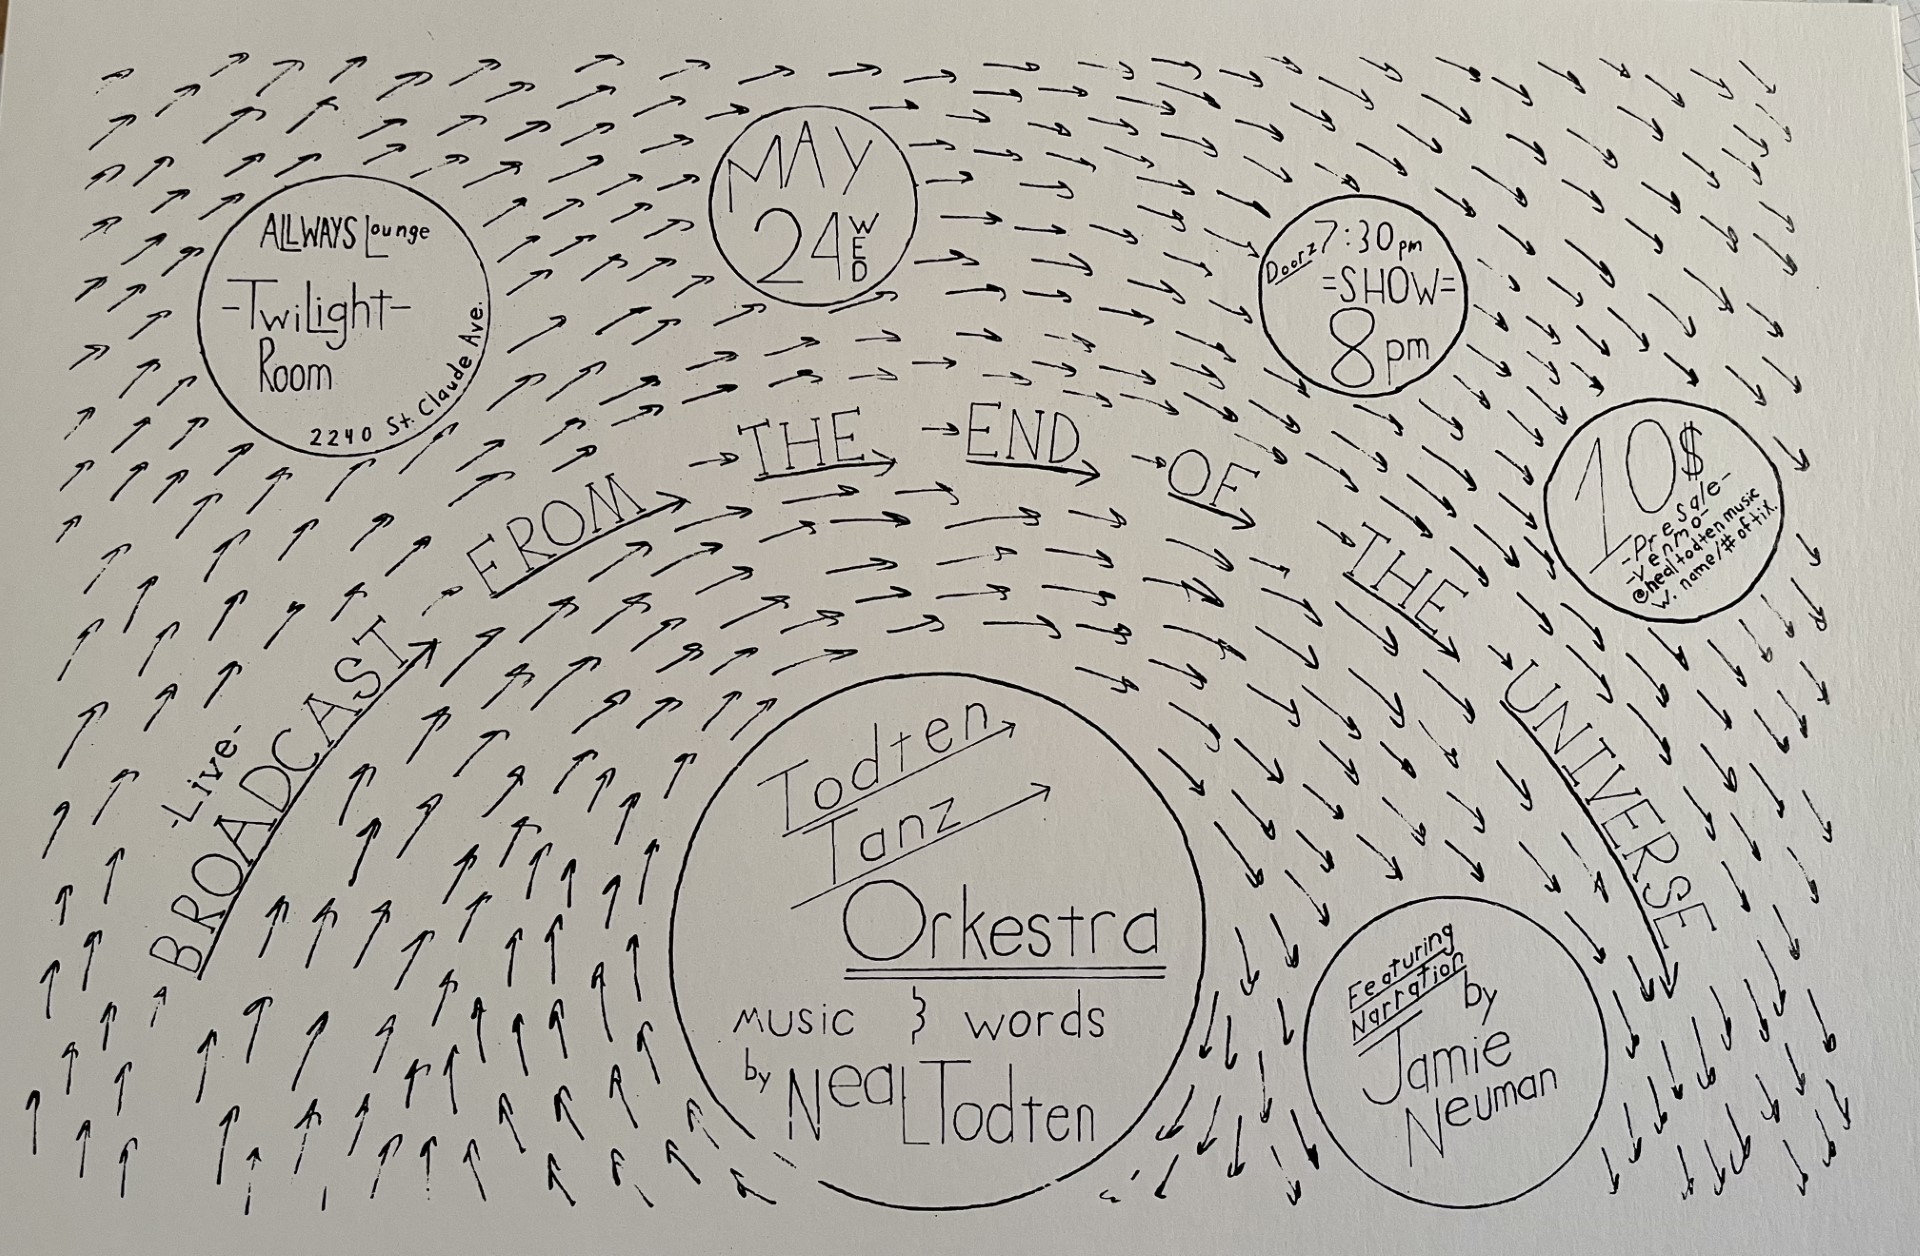 ALLWAYS Lounge
-TwiLight-
Room
2240 St. Claude Ave.
MAY
24 WED
Doorz 7:30pm
=SHOW=
8pm
10$
-Presale-
-Venmo-
@nealtodtenmusic
w. name/# of tix.
-Live-
BROADCAST FROM THE END OF THE UNIVERSE
Todten
Tanz
Orkestra
music & words
by Neal Todten
Featuring
Narration
by
Jamie
Neuman